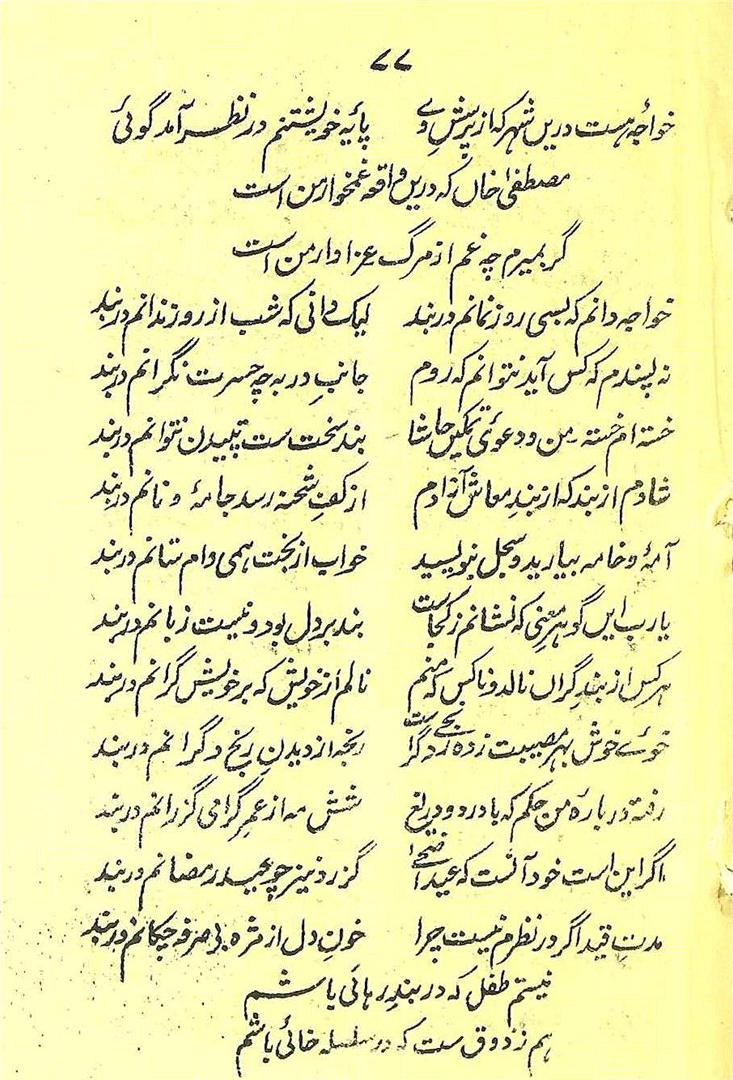 ۷۷
خواجہ ہست دریں شہر کہ از پرسشِ وے پایۂ خویشتنم در نظر آمد گوئی
مصطفیٰ خاں کہ دریں واقعہ غمخوار من است
گر بمیرم چہ غم از مرگ عزادار من است
خواجہ دانم کہ بسی روز نمانم در بند لیک دانی کہ شب از روز ندانم در بند
نہ پسندم کہ کس آید نتوانم کہ روم جانبِ در بہ چہ حسرت نگرانم در بند
خستہ ام خستہ من و دعوئ تمکیں حاشا بند سخت ست تپیدن نتوانم در بند
شادم از بند کہ از بندِ معاش آزادم از کفِ شحنہ رسد جامۂ و نانم در بند
آمۂ و خامہ بیارید و سجل بنویسید خواب از بخت ہمی وام ستانم در بند
یارب ایں گوہر معنی کہ نشانم ز کجاست بند بر دل بود و نیست زبانم در بند
ہر کس از بندِ گراں نالد و ناکس کہ منم نالم از خویش کہ بر خویش گرانم در بند
خوئے خوش بہر مصیبت زدہ رنجے دگر است رنجہ از دیدنِ رنج دگرانم در بند
رفتہ دربارۂ من حکم کہ با درد و دریغ شش مہ از عمرِ گرامی گزرانم در بند
اگر این است خود آنست کہ عید اضحےٰ گزرد نیز چو عید رمضانم در بند
مدتِ قید اگر در نظرم نیست چرا خونِ دل از مژہ بی صرفہ چکانم در بند
نیستم طفل کہ در بندِ رہائی باشم
ہم ز ذوق ست کہ در سلسلہ خائی باشم